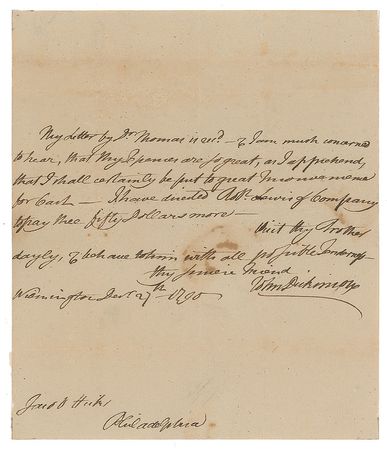 Thy Letter by Dr. Thomas is recd. — & I am much concerned
to hear, that thy Expences are so great, as I apprehend,
that I shall certainly be put to great Inconvenience
for Cash — I have directed Robt. Lewis & Company
to pay thee fifty Dollars more —
Visit thy Brother
dayly, & behave to him with all possible Tenderness —
thy sincere Friend
John Dickinson
Wilmington Decr. 27th 1790
Hicks
Philadelphia